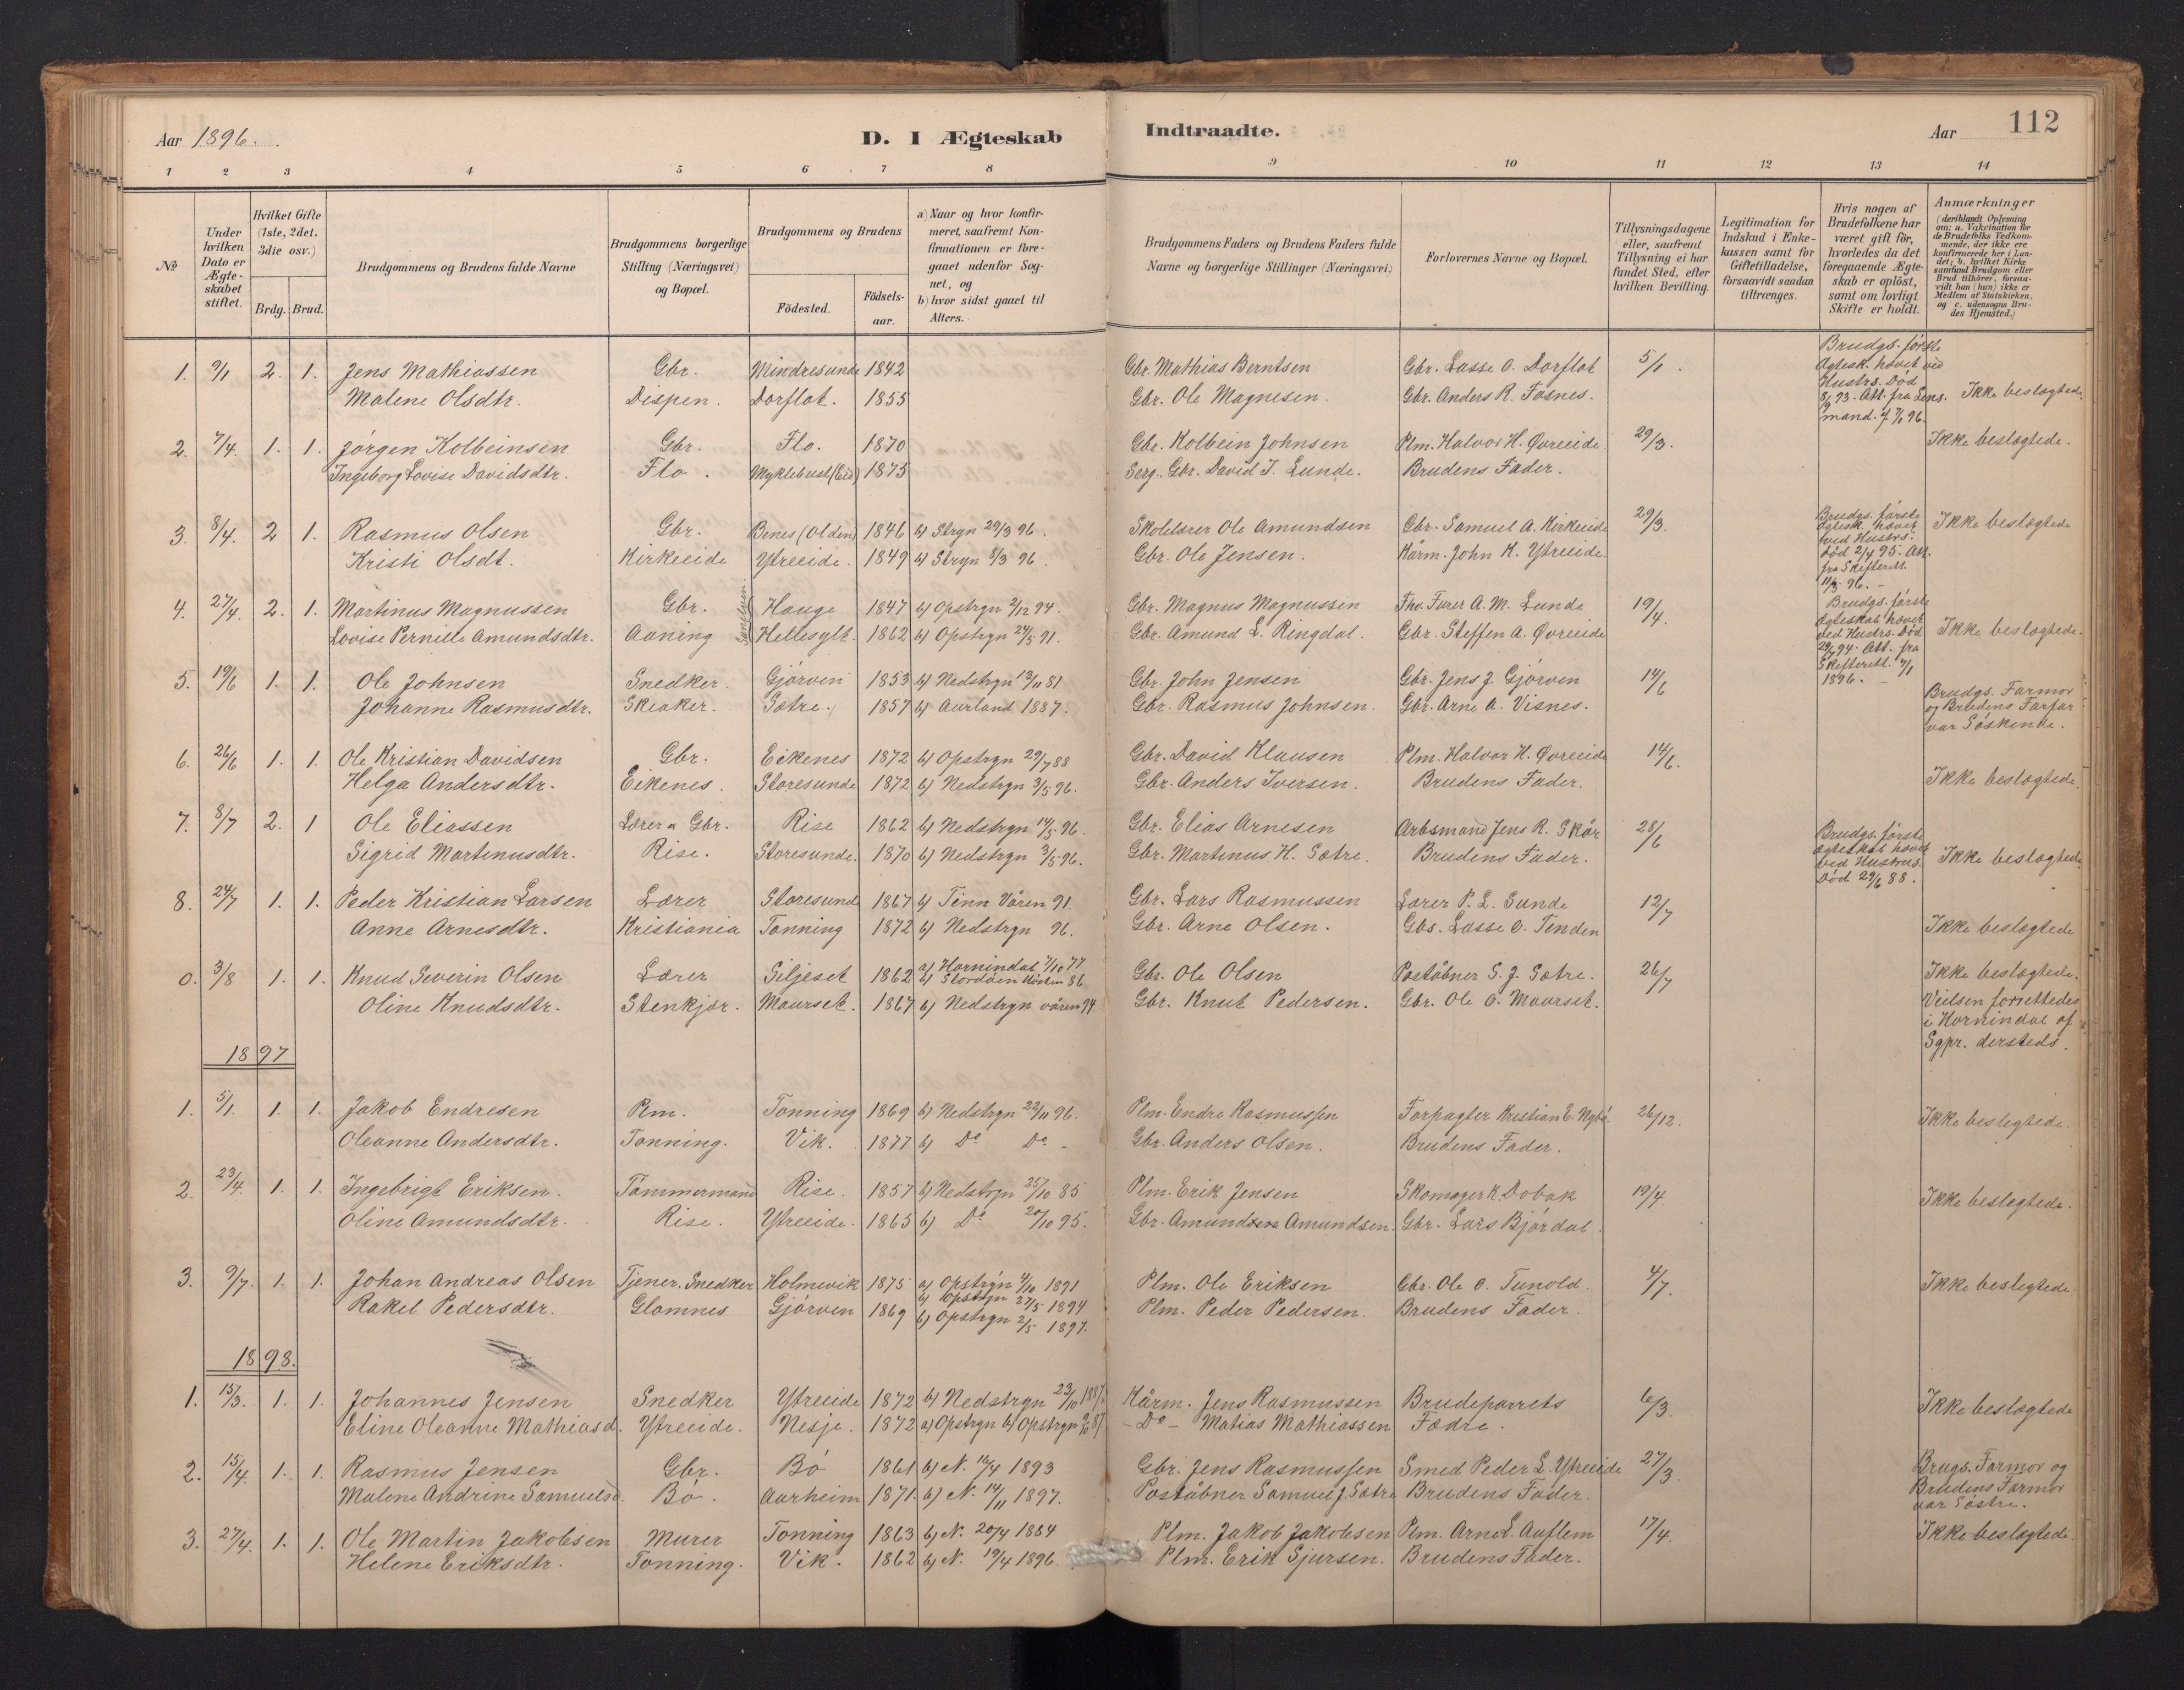 Aar 1896.
D. I Ægteskab Indtraadte.
Aar
112
1 2 3 4 5 6 7 8 9 10 11 12 13 14
No
Under hvilken Dato er Ægteskabet stiftet.
Hvilket Gifte (1ste, 2det, 3die osv.)
Brdg. Brud.
Brudgommens og Brudens fulde Navne
Brudgommens borgerlige Stilling (Næringsvei) og Bopæl.
Brudgommens og Brudens
Födested.
Födselsaar.
a) Naar og hvor konfirmeret, saafremt Konfirmationen er foregaaet udenfor Sognet, og
b) hvor sidst gaaet til Alters.
Brudgommens Faders og Brudens Faders fulde Navne og borgerlige Stillinger (Næringsvei)
Forlovernes Navne og Bopæl.
Tillysningsdagene eller, saafremt Tillysning ei har fundet Sted, efter hvilken Bevilling.
Legitimation for Indskud i Enkekassen samt for Giftetilladelse, forsaavidt saadan tiltrænges.
Hvis nogen af Brudefolkene har været gift för, hvorledes da det foregaaende Ægteskab er oplöst, samt om lovligt Skifte er holdt.
Anmærkninger
(deriblandt Oplysning om: a. Vakcination for de Brudefolks Vedkommende, der ikke ere konfirmerede her i Landet; b. hvilket Kirkesamfund Brudgom eller Brud tilhörer, forsaavidt han (hun) ikke er Medlem af Statskirken, og c. udensogns Brudes Hjemsted.)
1. 9/1 2. 1. Jens Mathiassen Gbr. Mindresunde 1842 Gbr. Mathias Berntsen Gbr. Lasse O. Dorflot 5/1. Brudgs. første Ægtesk. hævet ved Hustrs. Død 8/9 93. Att. fra Lensmand. 7/1 96.
Malene Olsdtr. Dispen. Dorflot. 1855 Gbr. Ole Magnesen. Gbr. Anders R. Fosnes. Ikke beslægtede.
2. 7/4. 1. 1. Jørgen Kolbeinsen Gbr. Flo. 1870 Gbr. Kolbein Johnsen Plm. Halvor H. Øvreeide 29/3. Ikke beslægtede.
Ingeborg Lovise Davidsdtr. Flo. Myklebust (Eid) 1875 Serg. Gbr. David J. Lunde. Brudens Fader.
3. 8/4. 2 1. Rasmus Olsen Gbr. Benes (Olden) 1846 b) Stryn 29/3 96. Skolelærer Ole Amundsen Gbr. Samuel A. Kirkeeide 29/3. Brudgs. første Ægtesk. hævet ved Hustrs. død 2/4 95. Att. fra Skifterett. 11/3 96. Ikke beslægtede
Kristi Olsdt. Kirkeeide Ytreeide. 1849 b) Stryn 8/3 96. Gbr. Ole Jensen. Kårm. John K. Ytreeide
4. 27/4. 2. 1. Martinus Magnussen Gbr. Hauge 1847 b) Opstryn 2/12 94. Gbr. Magnus Magnussen Fhv. Furer A. M. Lunde 19/4. Brudgs. første Ægteskab hævet ved Hustrs. Død 29/7 94. Att. fra Skifterett. 7/1 1896. Ikke beslægtede.
Lovise Pernille Amundsdtr. Aaning Hellesylt. 1862 b) Opstryn 24/5 91. Gbr. Amund L. Ringdal. Gbr. Steffen A. Øvreeide
5. 19/6 1. 1. Ole Johnsen Snedker. Gjørven 1853 b) Nedstryn 13/11 81 Gbr. John Jensen Gbr. Jens J. Gjørven 14/6
Johanne Rasmusdtr. Skeaker. Sætre. 1857 b) Aurland 1887. Gbr. Rasmus Johnsen. Gbr. Arne A. Visnes. Brudgs. Farmor og Brudens Farfar var Søskende.
6. 26/6 1. 1. Ole Kristian Davidsen Gbr. Eikenes 1872 b) Opstryn 29/7 88 Gbr. David Klausen Plm. Halvor H. Øvreeide 14/6.
Helga Andersdtr. Eikenes. Storesunde 1872 b) Nedstryn 3/5 96. Gbr. Anders Iversen. Brudens Fader. Ikke beslægtede.
7. 8/7 2. 1 Ole Eliassen Lærer & Gbr. Rise 1862 b) Nedstryn 14/5 96. Gbr. Elias Arnesen Arbsmand Jens R. Skår 28/6 Brudgs. første Ægteskab hævet ved Hustrus Død 29/6 88.
Sigrid Martinusdtr. Rise. Storesunde. 1870 b) Nedstryn 3/5 96. Gbr. Martinus H. Sætre. Brudens Fader. Ikke beslægtede
8. 24/7 1. 1. Peder Kristian Larsen Lærer Storesunde 1867 b) Tinn Våren 91. Gbr. Lars Rasmussen Lærer P. L. Sunde 12/7
Anne Arnesdtr. Kristiania Tonning 1872 b) Nedstryn 96. Gbr. Arne Olsen. Gbr. Lasse O. Tenden Ikke beslægtede
0. 3/8 1. 1. Knud Severin Olsen Lærer Siljeset 1862 a) Hornindal 7/10 77 b) Stordøen Høsten 86 Gbr. Ole Olsen Poståbner S. J. Sætre. 26/7 Ikke beslægtede.
Oline Knudsdtr. Stenkjær. Maurset. 1867 b) Nedstryn våren 94. Gbr. Knut Pedersen. Gbr. Ole O. Maurset. Vielsen forrettedes i Hornindal af Sgpr. dersteds.
1897
1. 5/1. 1. 1. Jakob Endresen Plm. Tonning 1869 b) Nedstryn 22/11 96. Plm. Endre Rasmussen Forpagter Kristian E. Nybø. 26/12. Ikke beslegtede.
Oleanne Andersdtr. Tonning. Vik. 1877 b) Do Do - Gbr. Anders Olsen. Brudens Fader.
2. 23/4. 1. 1. Ingebrigt Eriksen. Tømmermand Rise. 1857 b) Nedstryn 25/10 85 Plm. Erik Jensen Skomager K. Dobak 19/4. Ikke beslegtede.
Oline Amundsdtr. Rise. Ytreeide. 1865 b) Do 20/10 95. Gbr. Amundsen Amundsen. Gbr. Lars Bjørdal.
3. 9/7. 1. 1. Johan Andreas Olsen Tjener. Snedker Holmevik 1875 a) Opstryn 4/10 1891 b) Opstryn 27/5 1894 Plm. Ole Eriksen Gbr. Ole O. Tunold. 4/7. Ikke beslegtede.
Rakel Pedersdtr. Glomnes Gjørven 1869 b) Opstryn 2/5 1897. Plm. Peder Pedersen. Brudens Fader.
1898.
1. 15/3. 1. 1. Johannes Jensen Snedker Ytreeide 1872 b) Nedstryn 23/10 1887. Kårm. Jens Rasmussen Brudeparrets 6/3. Ikke beslægtede
Eline Oleanne Mathiasd. Ytreeide. Nesje. 1872 a) Opstryn b) Opstryn 87 - Do - Matias Mathiassen Fædre.
2. 15/4. 1. 1. Rasmus Jensen Gbr. Bø 1861 b) N. 16/4 1893 Gbr. Jens Rasmussen Smed Peder L. Ytreeide 27/3. Brugs. Farmor og Brudens Farmor var Søstre.
Malene Andrine Samuelsd. Bø. Aarheim 1871. b) N. 14/11 1897. Poståbner Samuel J. Sætre Brudens Fader.
3. 27/4. 1. 1. Ole Martin Jakobsen Murer Tonning 1863 b) N. 20/4 1884 Plm. Jakob Jakobsen Plm. Arne L. Auflem 17/4. Ikke beslegtede.
Helene Eriksdtr. Tonning. Vik. 1862 b) N. 19/4 1896. Plm. Erik Sjursen. Brudens Fader.